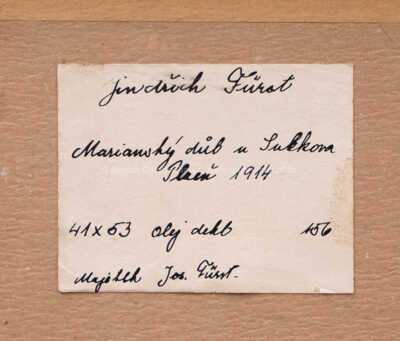 Jindřich Fürst
Marianský důb u Sukkova
Plzeň 1914
41x53 olej dekt 156
Majetek Jos. Fürst.